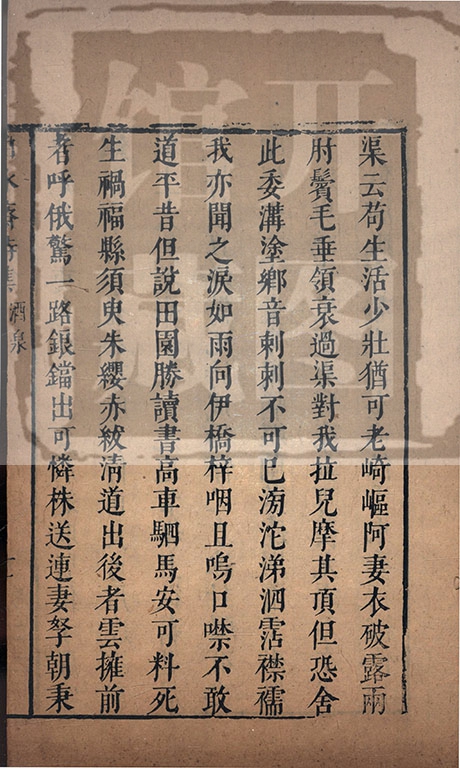 渠云苟生活少壯猶可老崎嶇阿妻衣破露兩
肘鬢毛垂領衰過渠對我拉兒摩其頂但恐舍
此委溝塗鄉音刺刺不可已滂沱涕泗霑襟襦
我亦聞之淚如雨向伊橋梓咽且嗚口噤不敢
道平昔但說田園勝讀書高車駟馬安可料死
生禍福縣須臾朱纓赤紱清道出後者雲擁前
者呼俄驚一路鋃鐺出可憐株送連妻孥朝秉
酒泉